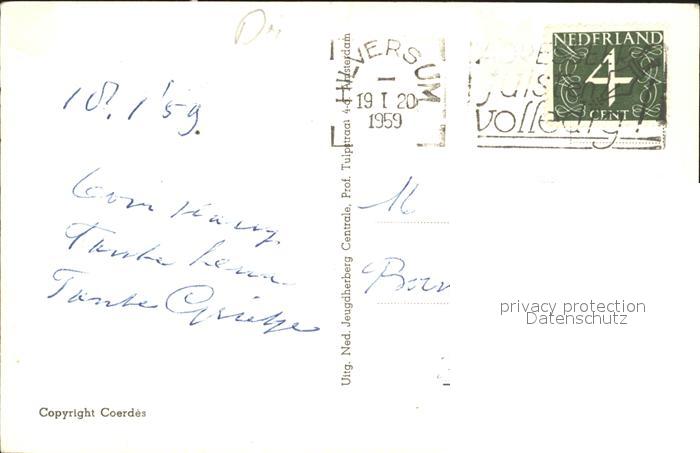 18.1'59.
Tante Lena
Tante Grietje
Copyright Coerdès
Uitg. Ned. Jeugdherberg Centrale, Prof. Tulpstraat 4-6 Amsterdam
HILVERSUM
19 I 20
1959
NEDERLAND
4
CENT
juist
volledig!
privacy protection
Datenschutz